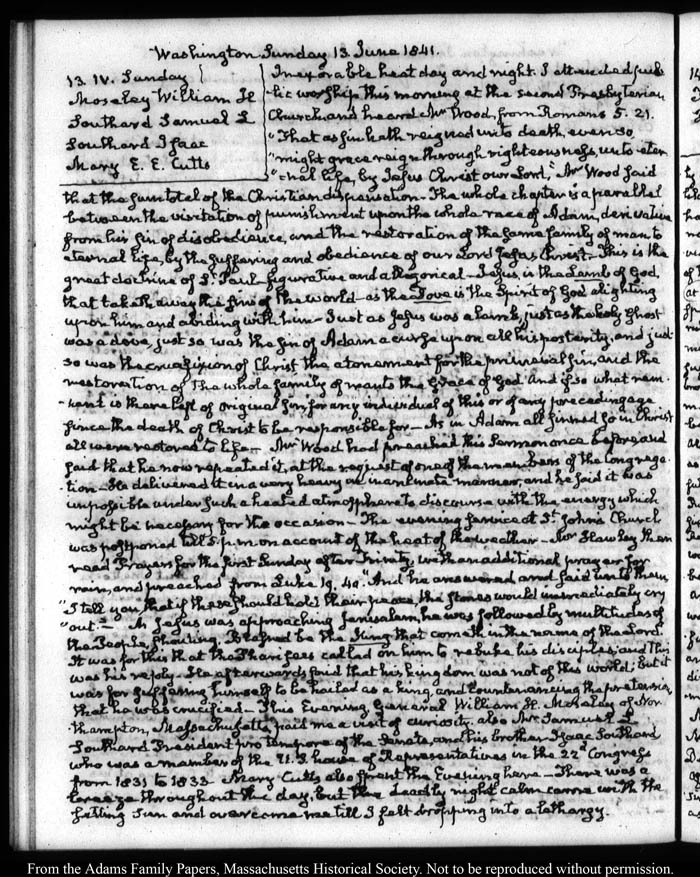 Washington Sunday 13 June 1841.
13. IV. Sunday
Moseley William H
Southard Samuel L
Southard Isaac
Mary E. E. Cutts
Inexorable heat day and night. I attended pub-
lic worship this morning at the second Presbyterian
Church and heard Mr Wood, from Romans 5. 21.
"That as sin hath reigned unto death, even so
"might grace reign through righteousness, unto eter
"nal life, by Jesus Christ our Lord." Mr Wood said
that the sum total of the Christian dispensation. The whole chapter is a parallel
between the visitation of punishment upon the whole race of Adam, derivative
from his sin of disobedience, and the restoration of the same family of man to
eternal life, by the suffering and obedience of our Lord Jesus Christ. This is the
great doctrine of St. Paul—figurative and allegorical—Jesus, is the Lamb of God,
that taketh away the sins of the world—as the Dove is the Spirit of God alighting
upon him and abiding with him—Just as Jesus was a lamb, just as the holy Ghost
was a dove, just so was the sin of Adam a curse upon all his posterity, and just
so was the crucifixion of Christ the atonement for the primeval sin, and the
restoration of the whole family of man to the Grace of God. And if so what rem-
-nant is there left of original sin, for any individual of this or of any preceding age
since the death of Christ to be responsible for—As in Adam all sinned so in Christ
all were restored to life—Mr Wood had preached this Sermon once before, and
said that he now repeated it, at the request of one of the members of the Congrega-
tion—He delivered it in a very heavy or inanimate manner, and he said it was
impossible under such a heated atmosphere to discourse with the energy which
might be necessary for the occasion—The evening service at St. Johns Church
was postponed till 5 p.m. on account of the heat of the weather—Mr Hawley then
read Prayers for the first Sunday after Trinity, with an additional prayer for
rain, and preached from Luke 19. 40. "And he answered and said unto them,
"I tell you, that if these should hold their peace, the stones would immediately cry
"out."—As Jesus was approaching Jerusalem, he was followed by multitudes of
the People, shouting, Blessed be the King that cometh in the name of the Lord.
It was for this that the Pharisees called on him to rebuke his disciples, and this
was his reply—He afterwards said that his kingdom was not of this world; but it
was for suffering himself to be hailed as a king, and countenancing the pretension,
that he was crucified—This Evening General William H. Moseley of Nor-
thampton, Massachusetts, paid me a visit of curiosity. also Mr Samuel L
Southard President pro tempore of the Senate, and his brother Isaac Southard
who was a member of the U.S. house of Representatives in the 22d Congress
from 1831 to 1833—Mary Cutts also spent the Evening here—There was a
breeze throughout the day, but the deadly night calm came with the
setting Sun and overcame me till I felt dropping into a lethargy.
From the Adams Family Papers, Massachusetts Historical Society. Not to be reproduced without permission.